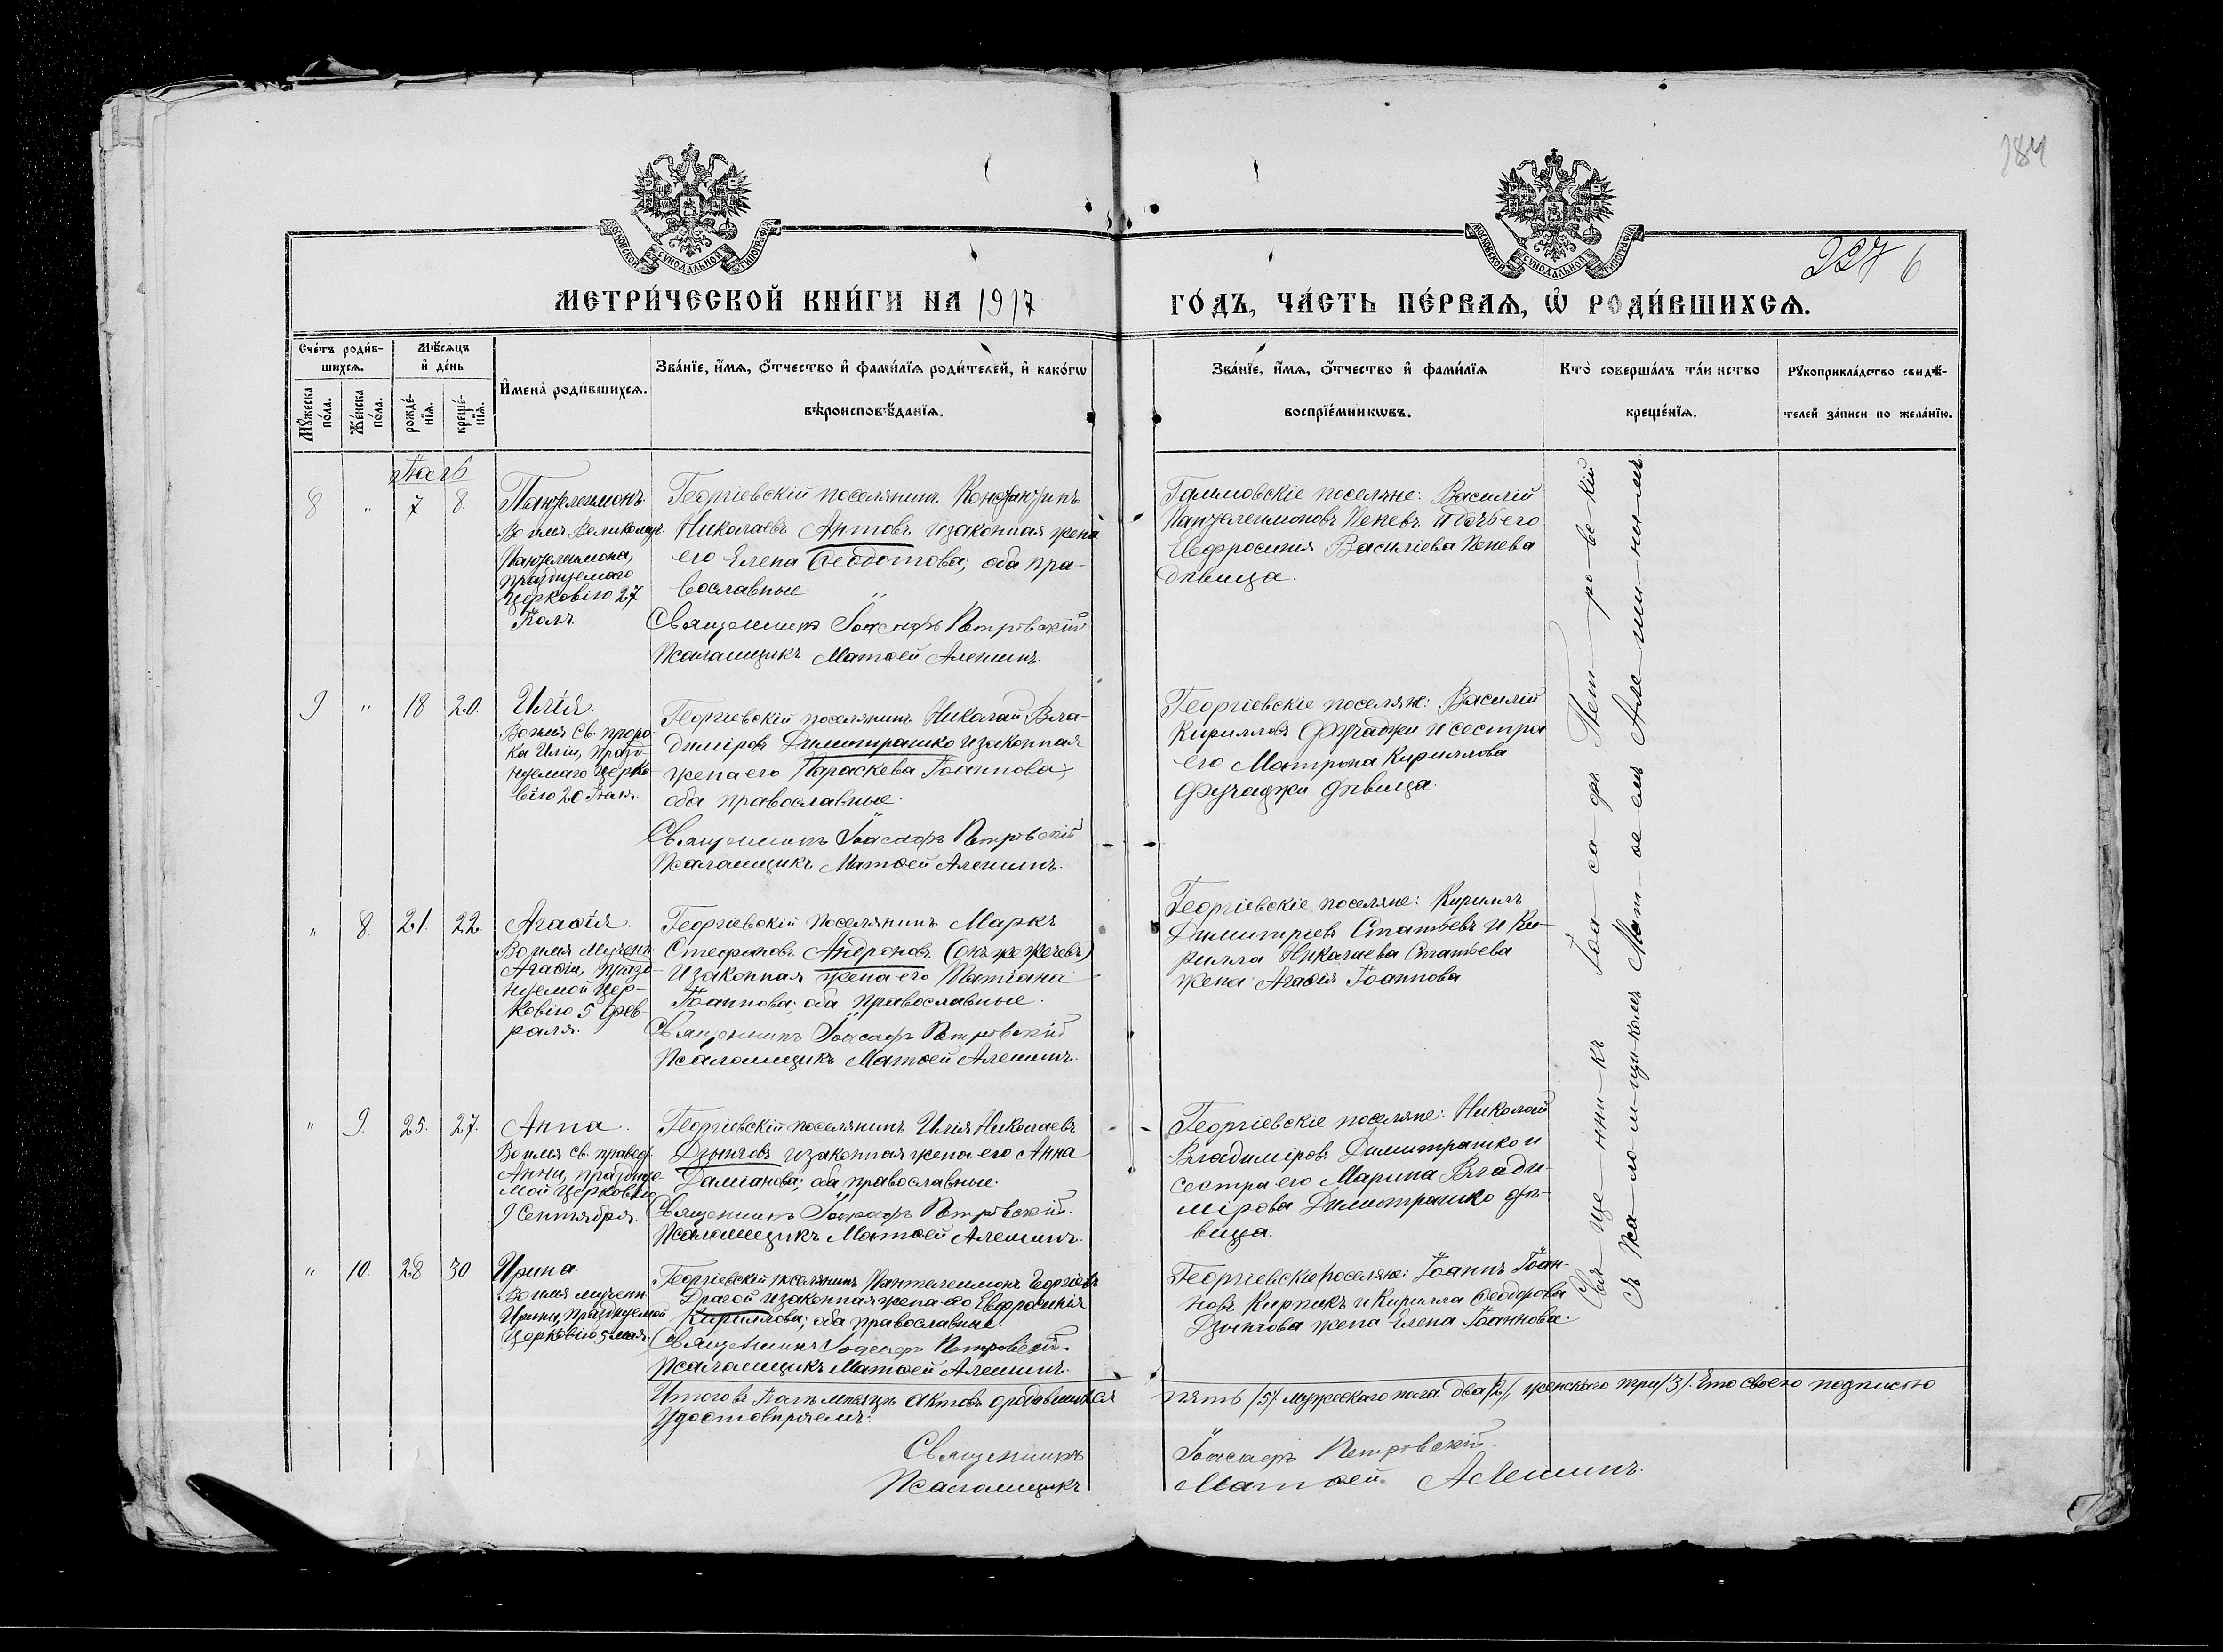 184
227 6
МОСКОВСКОЙ СѴНОДАЛЬНОЙ ТИПОГРАФІИ
МОСКОВСКОЙ СѴНОДАЛЬНОЙ ТИПОГРАФІИ
МЕТРИ́ЧЕСКОЙ КНИ́ГИ НА 1917
ГО́ДЪ, ЧА́СТЬ ПЕ́РВАЯ, Ѡ҆ РОДИ́ВШИХСЯ.
Сче́тъ роди́в-
шихся.
Мꙋ́жеска по́ла.
Же́нска по́ла.
Мѣ́сяцъ
и҆ де́нь
рожде́-
нїѧ.
креще́-
нїѧ.
И҆мена̀ роди́вшихся.
Зва́нїе, и҆́мя, ѻ҆́тчество и҆ фами́лїѧ роди́телей, и҆ како́гѡ
вѣроисповѣ́данїѧ.
Зва́нїе, и҆́мя, ѻ҆́тчество и҆ фами́лїѧ
воспрїе́мникѡвъ.
Кто̀ соверша́лъ та́инство
креще́нїѧ.
Рꙋкоприкла́дство свидѣ́-
телей за́писи по жела́нїю.
8
"
7
8.
Пантелеимонъ.
Во имя Великомуч.
Пантелеимона,
празднуемаго
Церковію 27
Іюля.
Георгіевскій поселянинъ Константинъ
Николаевъ Антовъ и законная жена
его Елена Ѳеодотова; оба пра-
вославные.
Священникъ Іоасафъ Петровскій
Псаломщикъ Матѳей Алешинъ.
поселяне: Василій
Пантелеимоновъ Пеневъ и дочь его
Евфросинія Василіева Пенева
дѣвица.
9
"
18
20.
Илія.
Во имя Св. проро-
ка Иліи, празд-
нуемаго Церко-
вію 20 Іюля.
Георгіевскій поселянинъ Николай Вла-
диміровъ Димитрашко и законная
жена его Параскева Іоаннова;
оба православные.
Священникъ Іоасафъ Петровскій
Псаломщикъ Матѳей Алешинъ.
Георгіевскіе поселяне: Василій
Кирилловъ Фучаджи и сестра
его Матрона Кириллова
Фучаджи дѣвица.
"
8.
21.
22.
Агаѳія.
Во имя Мучен.
Агаѳіи, празд-
нуемой Цер-
ковію 5 Фев-
раля.
Георгіевскій поселянинъ Маркъ
Стефановъ Андроновъ (онъ же Жечевъ)
и законная жена его Татіана
Іоаннова; оба православные.
Священникъ Іоасафъ Петровскій
Псаломщикъ Матѳей Алешинъ.
Георгіевскіе поселяне: Кириллъ
Димитріевъ Статьевъ и Ки-
рилла Николаева Статьева
жена Агаѳія Іоаннова
"
9.
25.
27.
Анна.
Во имя Св. правед.
Анны, праздние-
мой Церковію
9 Сентября.
Георгіевскій поселянинъ Илія Николаевъ
Дынговъ и законная жена его Анна
Даміанова; оба православные.
Священникъ Іоасафъ Петровскій.
Псаломщикъ Матѳей Алешинъ.
Георгіевскіе поселяне: Николай
Владиміровъ Димитрашко и
сестра его Марина Влади-
мірова Димитрашко дѣ-
вица.
"
10.
28
30
Ирина.
Во имя мучени.
Ирины, празднуемой
Церковію 5 мая.
Георгіевскій поселянинъ Пантелеимонъ Георгіевъ
Драгой и законная жена его Евфросинія
Кириллова; оба православные.
Священникъ Іоасафъ Петровскій.
Псаломщикъ Матѳей Алешинъ.
Георгіевскіе поселяне: Іоаннъ Іоан-
новъ Кирпикъ и Кирилла Ѳеодорова
Дынгова жена Елена Іоаннова.
Свя-ще-нни-къ Іоа-са-фъ Пет-ро-вс-кій
съ Пса-ло-м-щи-комъ Мат-ѳе-емъ Але-ши-ны-мъ.
Итого въ Іюлѣ мѣсяцѣ актовъ о родившихся пять /5/ мужескаго пола два /2/, женскаго три /3/. Что своею подписью
Удостовѣряемъ:
Священникъ Іоасафъ Петровскій.
Псаломщикъ Матѳей Алешинъ.